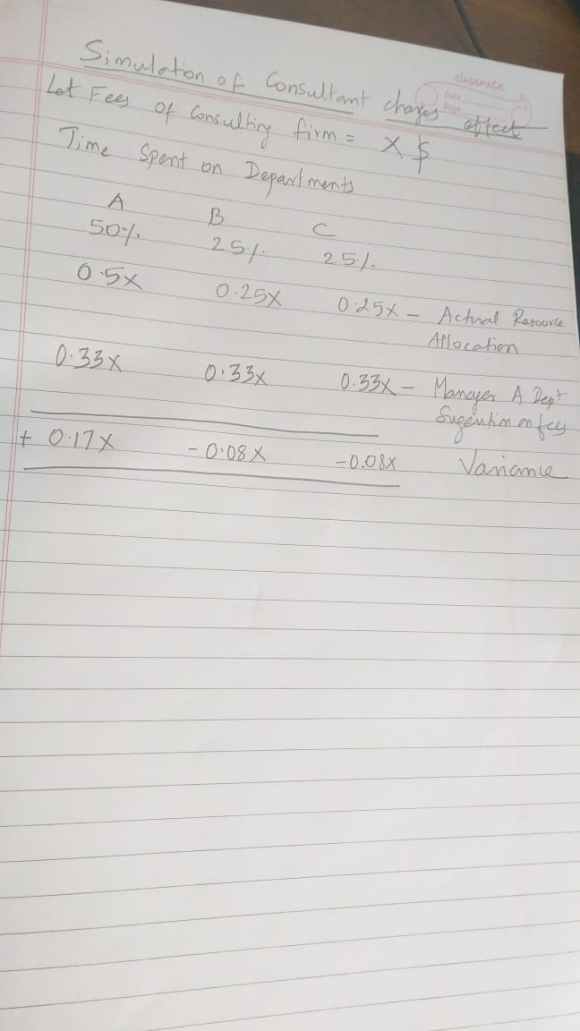 classmate
Date
Page
Simulation of Consultant charges effect
Let Fees of Consulting firm = X $
Time Spent on Departments
A B C
50% 25% 25%
0.5x 0.25x 0.25x - Actual Resource
Allocation
0.33x 0.33x 0.33x - Manager A Dept
on fees
+ 0.17x - 0.08x -0.08x Variance